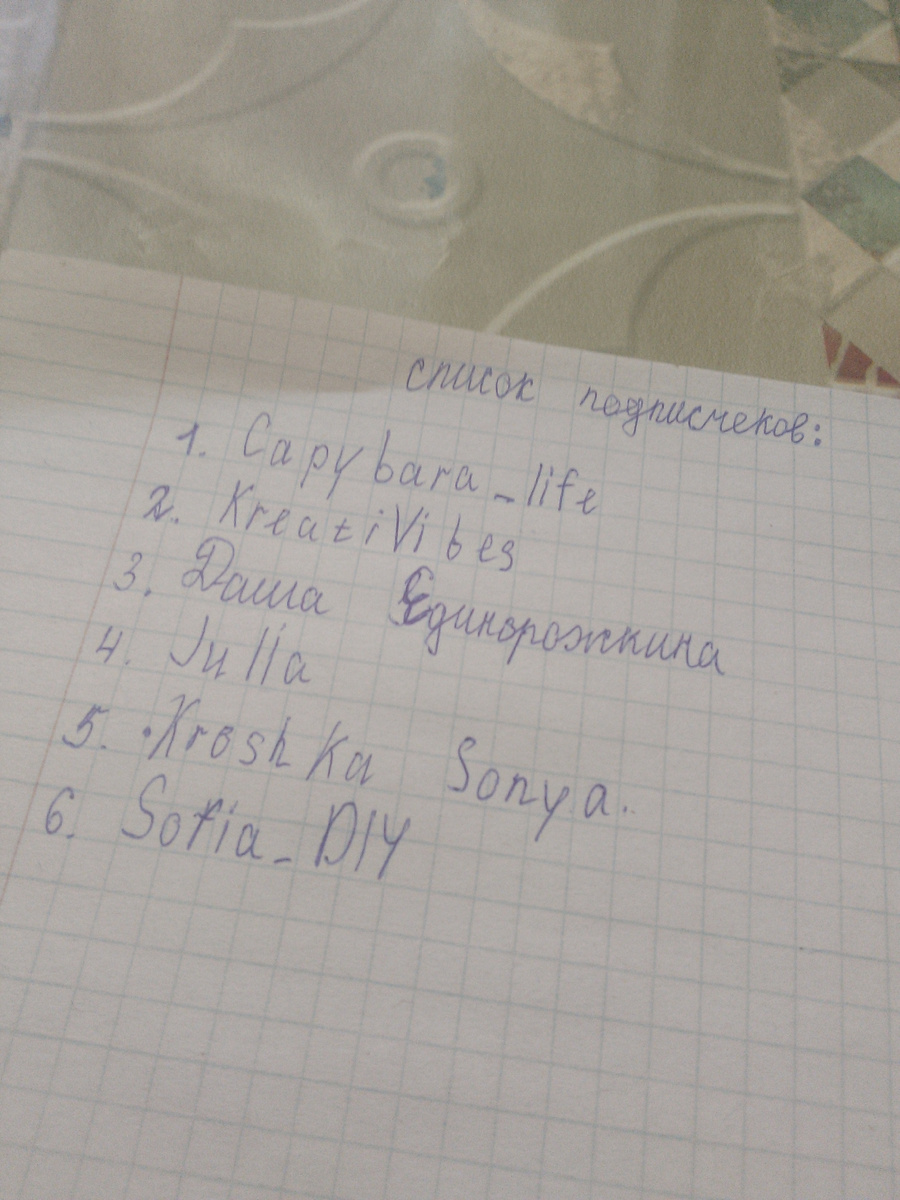 список подписчеков:
1. Capybara_life
2. KreatiVibes
3. Даша Единорожкина
4. Julia
5. Kroshka Sonya.
6. Sofia_DIY